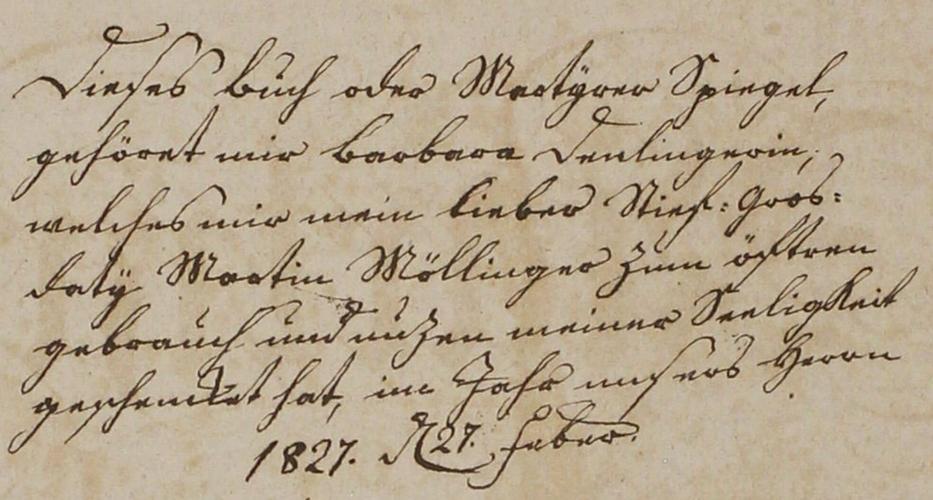 Dieses buch oder Martÿrer Spiegel,
gehöret mir barbara Denlingerin,
welches mir mein lieber Stief: Gros:
datÿ Martin Möllinger zum öftren
gebrauch und nuzen meiner Seeligkeit
geschencket hat, im Jahr unsers Herrn
1827. d 27. feber.